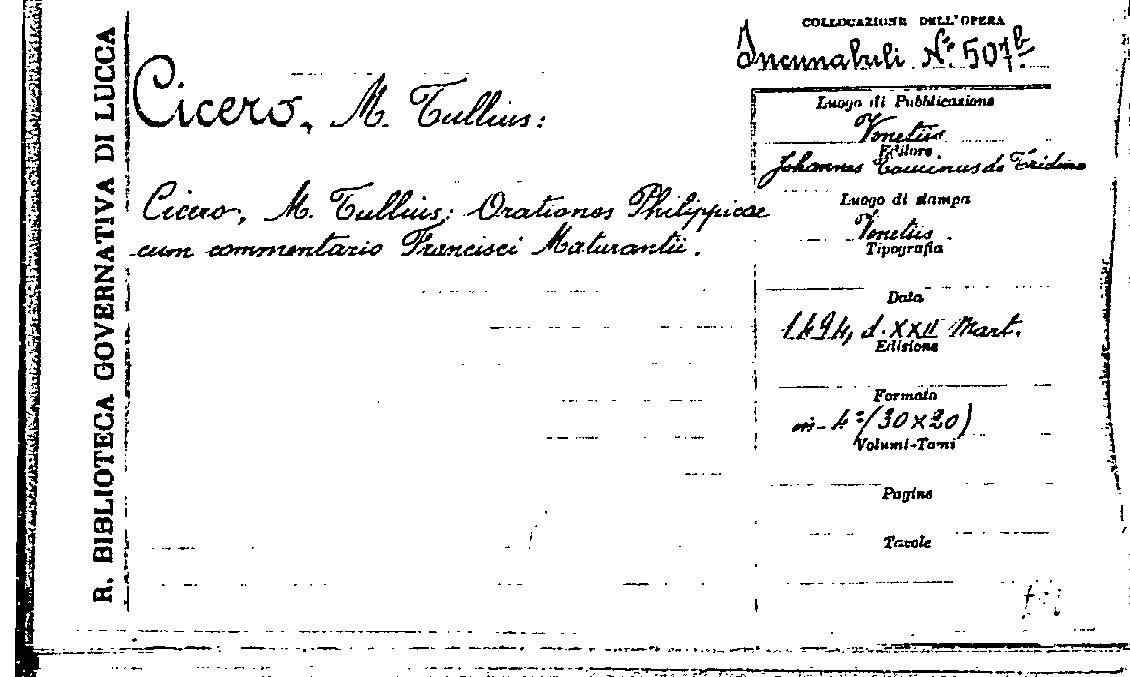 R. BIBLIOTECA GOVERNATIVA DI LUCCA
Cicero, M. Tullius:
Cicero, M. Tullius: Orationes Philippicae
cum commentario Francisci Maturantii.
COLLOCAZIONE DELL'OPERA
Incunabuli N.º 507b
Luogo di Pubblicazione
Venetiis
Editore
Johannes Tacuinus de Tridino
Luogo di stampa
Venetiis
Tipografia
Data
1494, d. XXII Mart.
Edizione
Formato
in-4º (30×20)
Volumi-Tomi
Pagine
Tavole